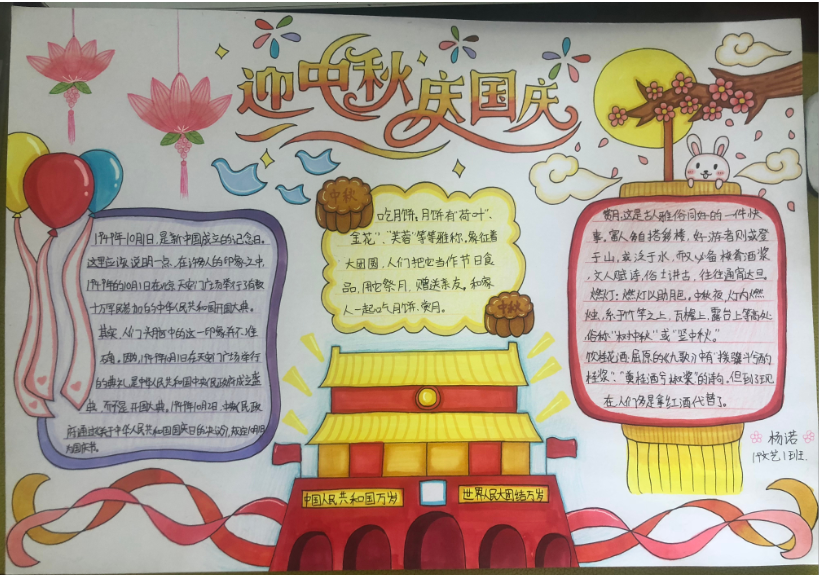 迎中秋 庆国庆
1949年10月1日,是新中国成立的纪念日。
这里应该说明一点,在许多人的印象之中,
1949年的10月1日在北京天安门广场举行了有数
十万军民参加的中华人民共和国开国大典。
其实,人们头脑中的这一印象并不准
确。因为,1949年10月1日在天安门广场举行
的典礼是中华人民共和国中央人民政府成立盛
典,而不是开国大典。1949年10月2日,中央人民政
府通过《关于中华人民共和国国庆日的决议》,规定
为国庆节。
中秋
吃月饼:月饼有"荷叶"、
金花"、"芙蓉"等等雅称,象征着
大团圆,人们把它当作节日食
品,用它祭月、赠送亲友。和家
人一起吃月饼、赏月。
中秋
这是古人雅俗同好的一件快
事,富人自搭彩楼,好游者则或登
于山,或泛于水,都必备
文人赋诗,俗士讲古,往往通宵达旦。
燃灯:燃灯以助月色。中秋夜,灯内燃
烛,系于竹竿之上,瓦檐上、露台上等高处
俗称"树中秋"或"竖中秋"。
饮桂花酒:屈原的《九歌》中有"援骥斗兮酌
桂浆"、"奠桂酒兮椒浆"的诗句,但到了现
在,人们多是拿红酒代替了。
中国人民共和国万岁
世界人民大团结万岁
杨诺
19文艺1班